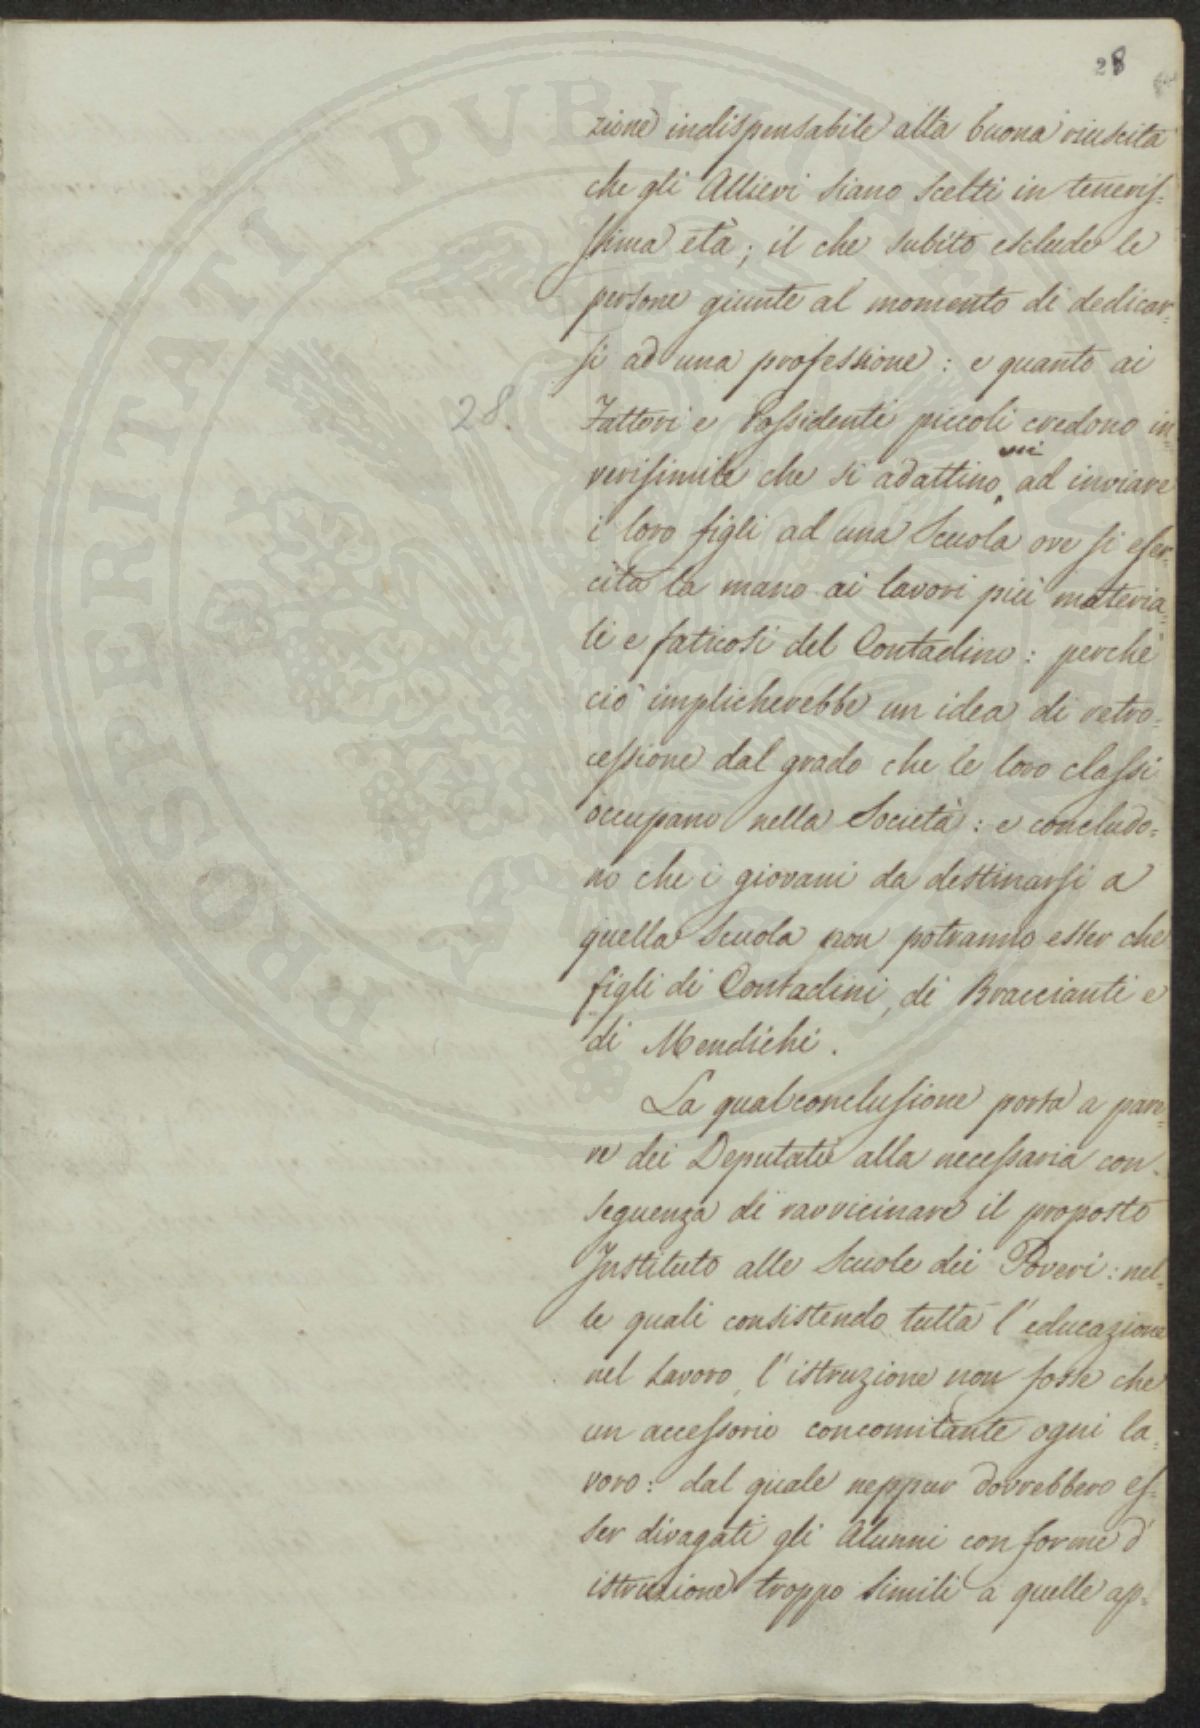 28
zione indispensabile alla buona riuscita
che gli Allievi siano scelti in teneris=
sima età; il che subito esclude le
persone giunte al momento di dedicar=
si ad una professione: e quanto ai
28.
Fattori e Possidenti piccoli credono in=
verisimile che si adattino mai ad inviare
i loro figli ad una Scuola ove si eser=
cita la mano ai lavori più materia=
li e faticosi del Contadino: perchè
ciò implicherebbe un idea di retro=
cessione dal grado che le loro classi
occupano nella Società: e concludo=
no che i giovani da destinarsi a
quella Scuola non potranno esser che
figli di Contadini, di Braccianti e
di Mendichi.
La qual conclusione porta a pare=
re dei Deputati alla necessaria con=
seguenza di ravvicinare il proposto
Instituto alle Scuole dei Poveri: nel=
le quali consistendo tutta l'educazione
nel Lavoro, l'istruzione non fosse che
un accessorio concomitante ogni la=
voro: dal quale neppur dovrebbero es=
ser divagati gli Alunni con forme d'
istruzione troppo simili a quelle ap=
PROSPERITATI PUBLICAE